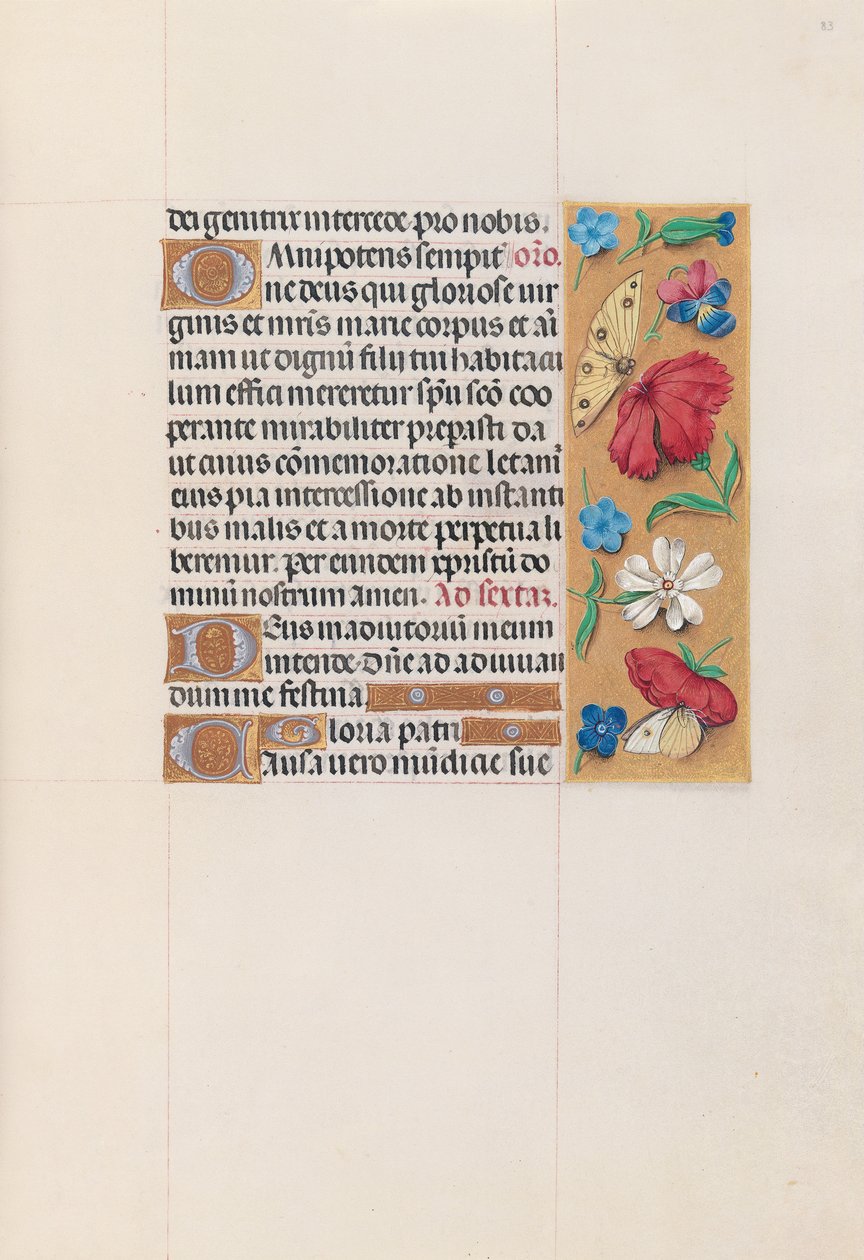 83
dei genitrix intercede pro nobis.
OMnipotens sempit̄ orō.
ne deus qui gloriose uir
ginis et mr̄is marie corpus et ai
mam ut dignū filij tui habitacu
lum effici mereretur spū scō coo
perante mirabiliter preparasti da
ut cuius cōmemoratione letam̄
eius pia intercessione ab instanti
bus malis et a morte perpetua li
beremur. per eundem xpristū do
minū nostrum Amen. Ad sextaz.
DEus in adiutoriū meum
intende. Dn̄e ad adiuuan
dum me festina
Gloria patri
CAusa uero mūdicie sue